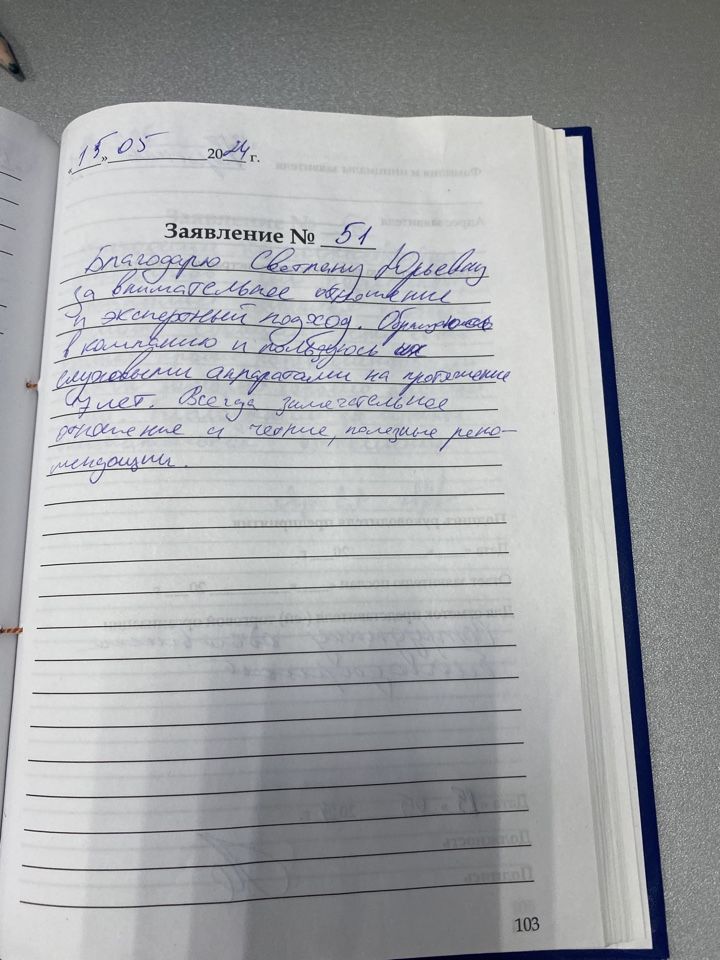 «15» 05 2024 г.
Заявление № 51
Благодарю Светлану Юрьевну
за внимательное отношение
и экспертный подход. Обращаюсь
в компанию и пользуюсь их
слуховыми аппаратами на протяжение
7 лет. Всегда замечательное
отношение и четкие, полезные реко-
мендации.
103